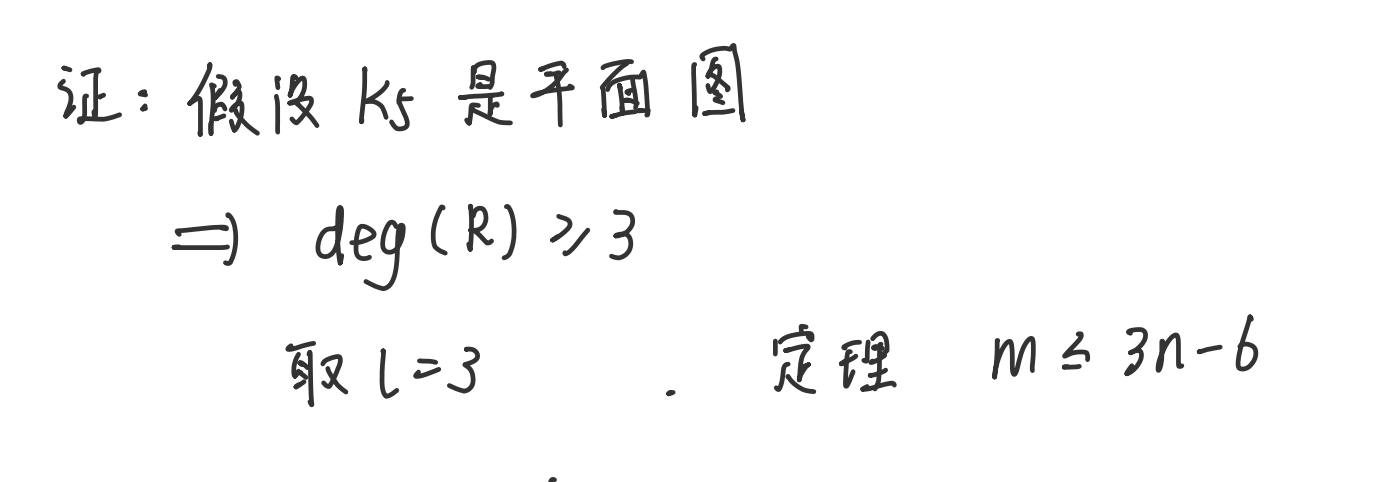 证：假设 K5 是平面图
⇒ deg(R) ≥ 3
取 l=3 . 定理 m ≤ 3n-6